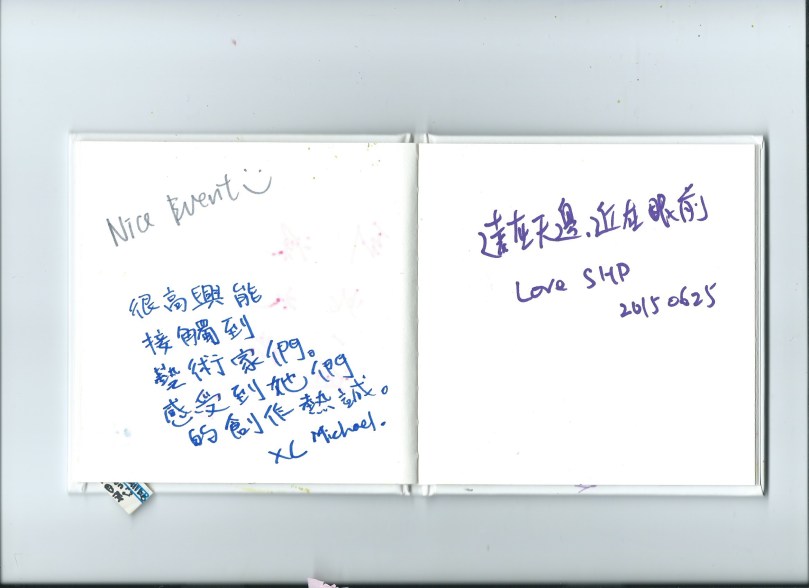 Nice Event
很高興能
接觸到
藝術家們。
感受到她們
的創作熱誠。
XC Michael.
遠在天邊、近在眼前
Love SHP
20150625